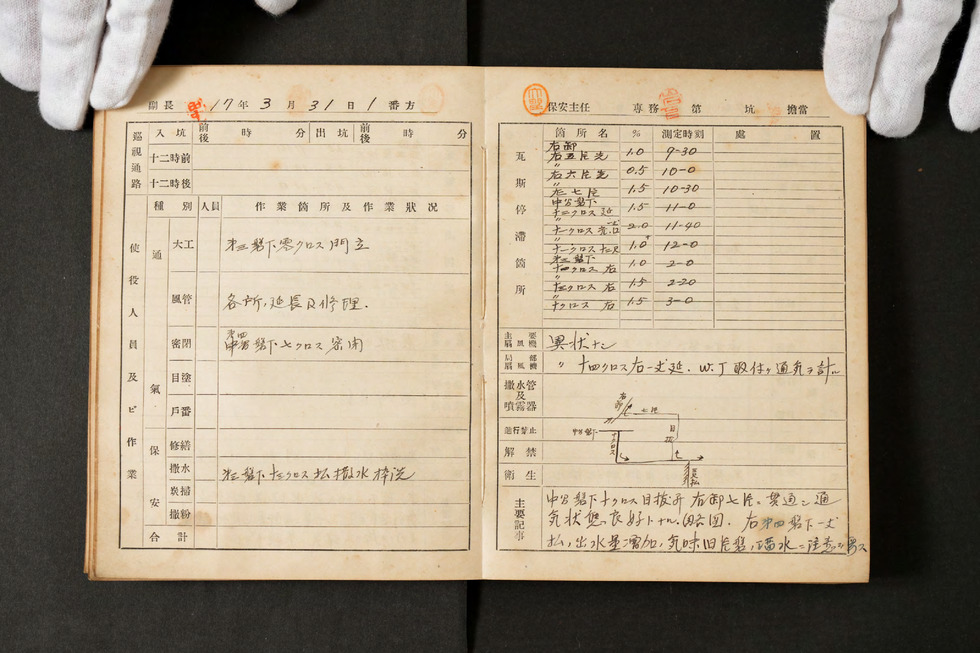 副長 17年3月31日1番方
巡視通路
入坑 前後 時 分 出坑 前後 時 分
十二時前
十二時後
使役人員及ビ作業
種別 人員 作業箇所及作業状況
通氣
大工 第三盤下零クロス門立
風管 各所、延長及修理.
密閉 第四 盤下七クロス密閉
目塗
戸番
保安
修繕
撒水 第三盤下 クロス払撒水枠洗
炭掃
撒粉
合計
保安主任 専務 第 坑 擔當
瓦斯停滯箇所
箇所名 % 測定時刻 處置
右卸
右五片先 1.0 9-30
〃右六片先 0.5 10-0
〃右七片 1.5 10-30
中部盤下
十二クロス延 1.5 11-0
2.0 11-40
1.0 12-0
第三盤下
十四クロス右 1.0 2-0
〃 クロス右 1.5 2-20
クロス右 1.5 3-0
主要扇風機 異状ナシ
局部扇風機 〃 十四クロス右一丈延. W.J取付ケ通気ヲ計ル
撒水管及噴霧器
進行禁止
解禁
衛生
右卸
七片
中部盤下
十クロス
目抜
主要記事
中部盤下十クロス目抜昇右卸七片ニ貫通シ通
気状態良好トナル、略図. 右第四盤下一丈
払、出水量増加、気味旧 盤、 水ニ注意ヲ要ス